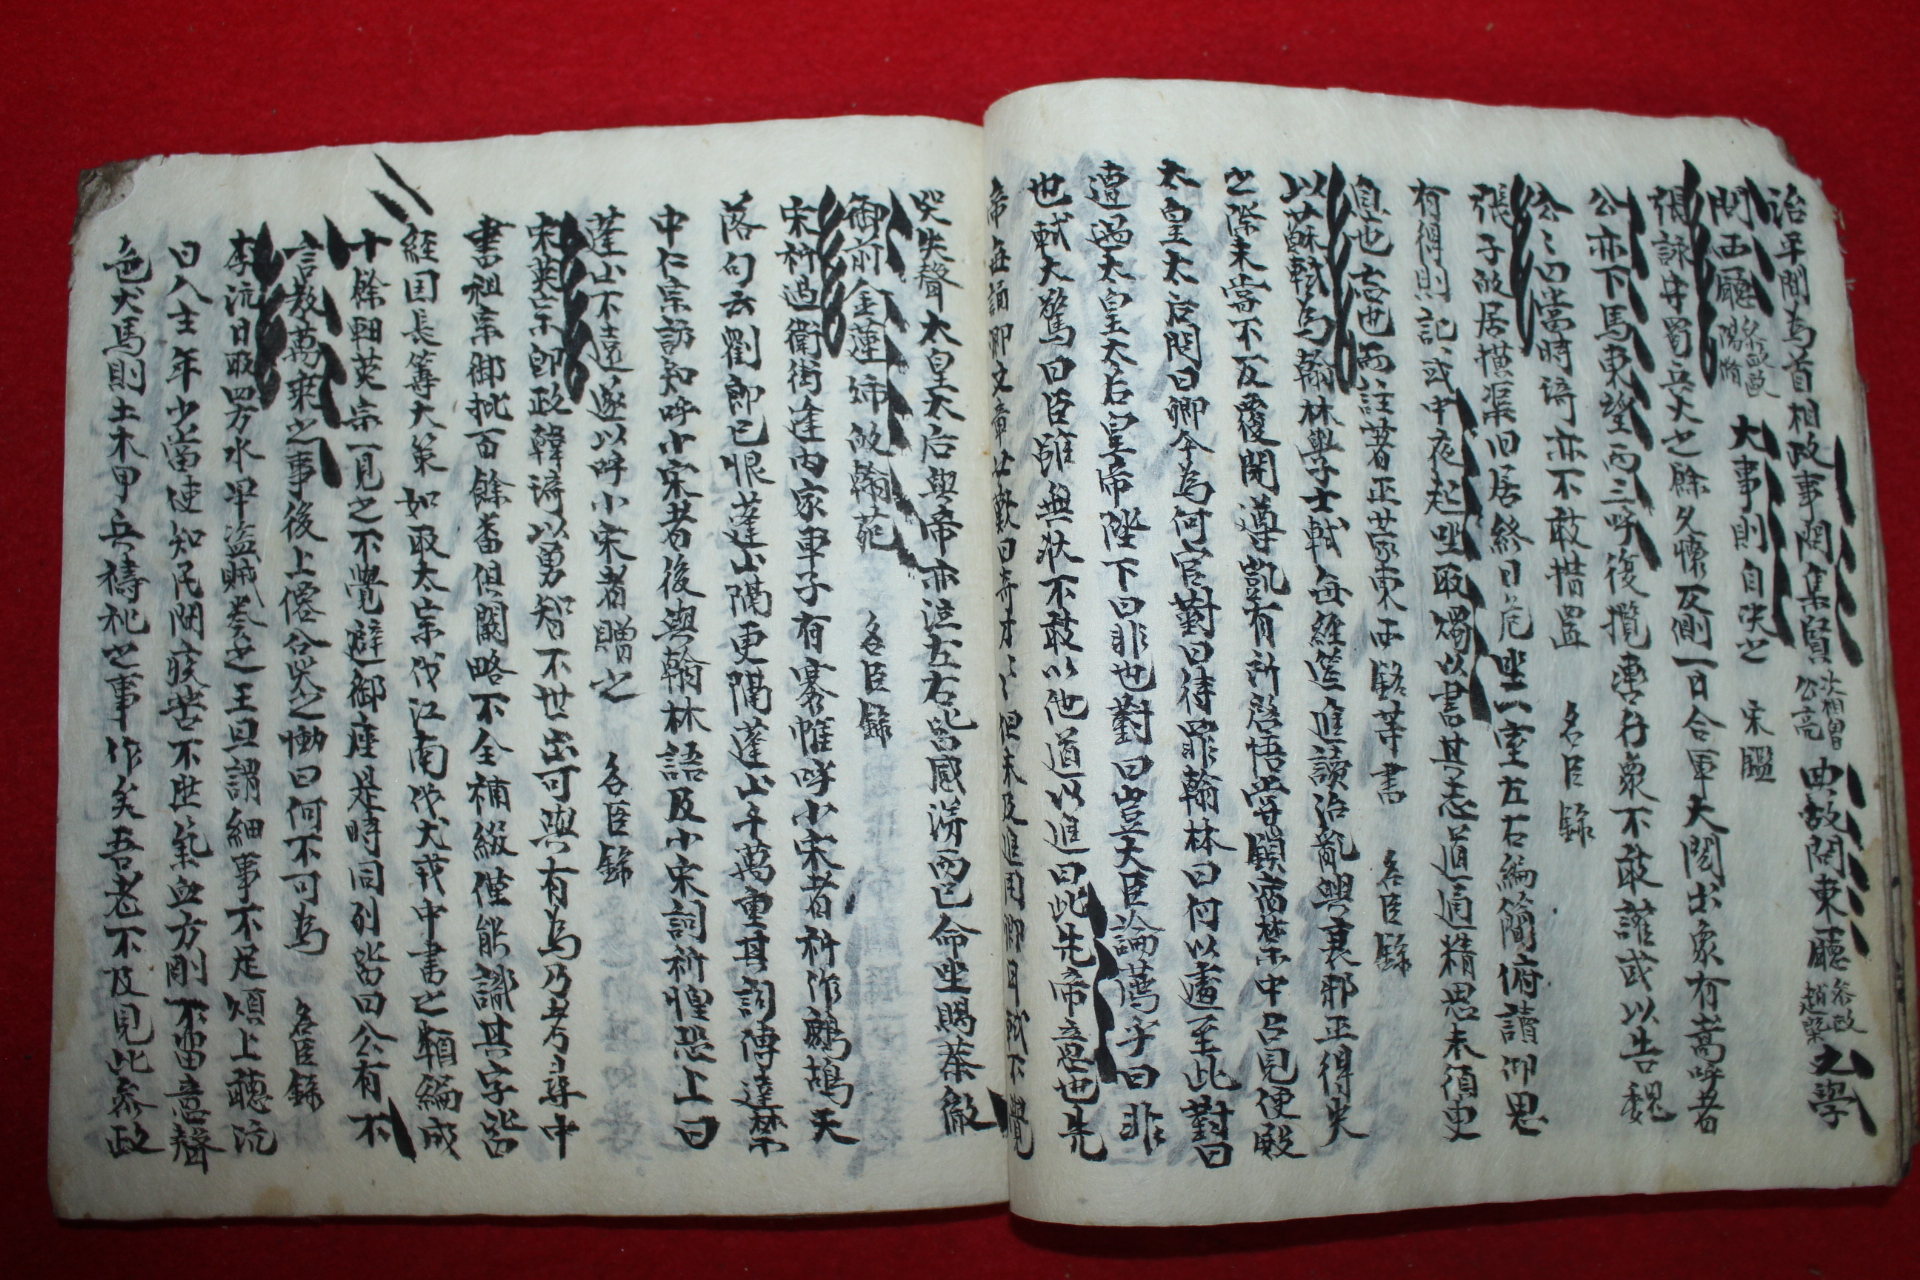 治平間為首相政事問集賢次相曾公亮典故問東廳參政趙槩文學
問西廳參政歐陽脩大事則自決之 宋鑑
張詠守蜀兵火之餘久懷反側一日合軍大閱出衆有嵩呼者
公亦下馬東望而三呼復攬轡行衆不敢讙或以告魏
公公曰當時琦亦不敢措置 名臣錄
張子故居橫渠旧居終日危坐一室左右編簡俯讀仰思
有得則記或中夜起坐取燭以書其志道適精思未須臾
息也 註著正蒙東西銘等書 名臣錄
以蘇軾為翰林學士軾每經筵進讀治亂興衰邪正得失
之際未嘗不反覆開導凱有所啓悟嘗鎖宿禁中召見便殿
太皇太后問曰卿今為何官對曰待罪翰林曰何以遽至此對曰
遭遇太皇太后皇帝陛下曰非也對曰豈大臣論薦乎曰非
也軾大驚曰臣雖無狀不敢以他道以進曰此先帝意也先
帝每誦卿文章必歎曰奇才々々但未及進用卿耳軾不覺
哭失聲太皇太后與帝亦泣左右皆感涕而已命坐賜茶徹
御前金蓮 歸翰苑 名臣錄
宋祁過衛街逢內家車子有褰帷呼小宋者祁作鷓鴣天
落句云劉郎已恨蓬山隔更隔蓬山千萬重其詞傳達禁
中仁宗訪知呼小宋者後與翰林語及小宋詞祁惶恐上曰
蓬山不遠遂以呼小宋者贈之 名臣錄
宋英宗即政韓琦以勇智不世出可與有為乃尋中
書祖宗御批百餘番俱闕略不全補綴僅能識其字皆
經国長筭大策如取太宗伐江南伐犬戎中書之類編成
十餘軸英宗一見之不覺避御座是時同列皆曰公有不
言教萬乘之事後上僊公哭之慟曰何不可為 名臣錄
李沆日取四方水旱盜賊奏之王旦謂細事不足煩上聽沆
曰人主年少當使知民間疾苦不然氣血方剛不留意聲
色犬馬則土木甲兵禱祀之事作矣吾老不及見此參政